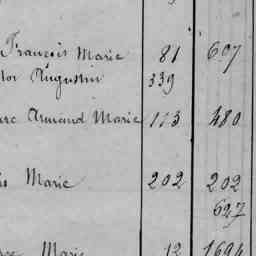 François Marie 81 607
tor Augustin 339
arc Armand Marie 113 480
is Marie 202 202
627
Marie 12 1694